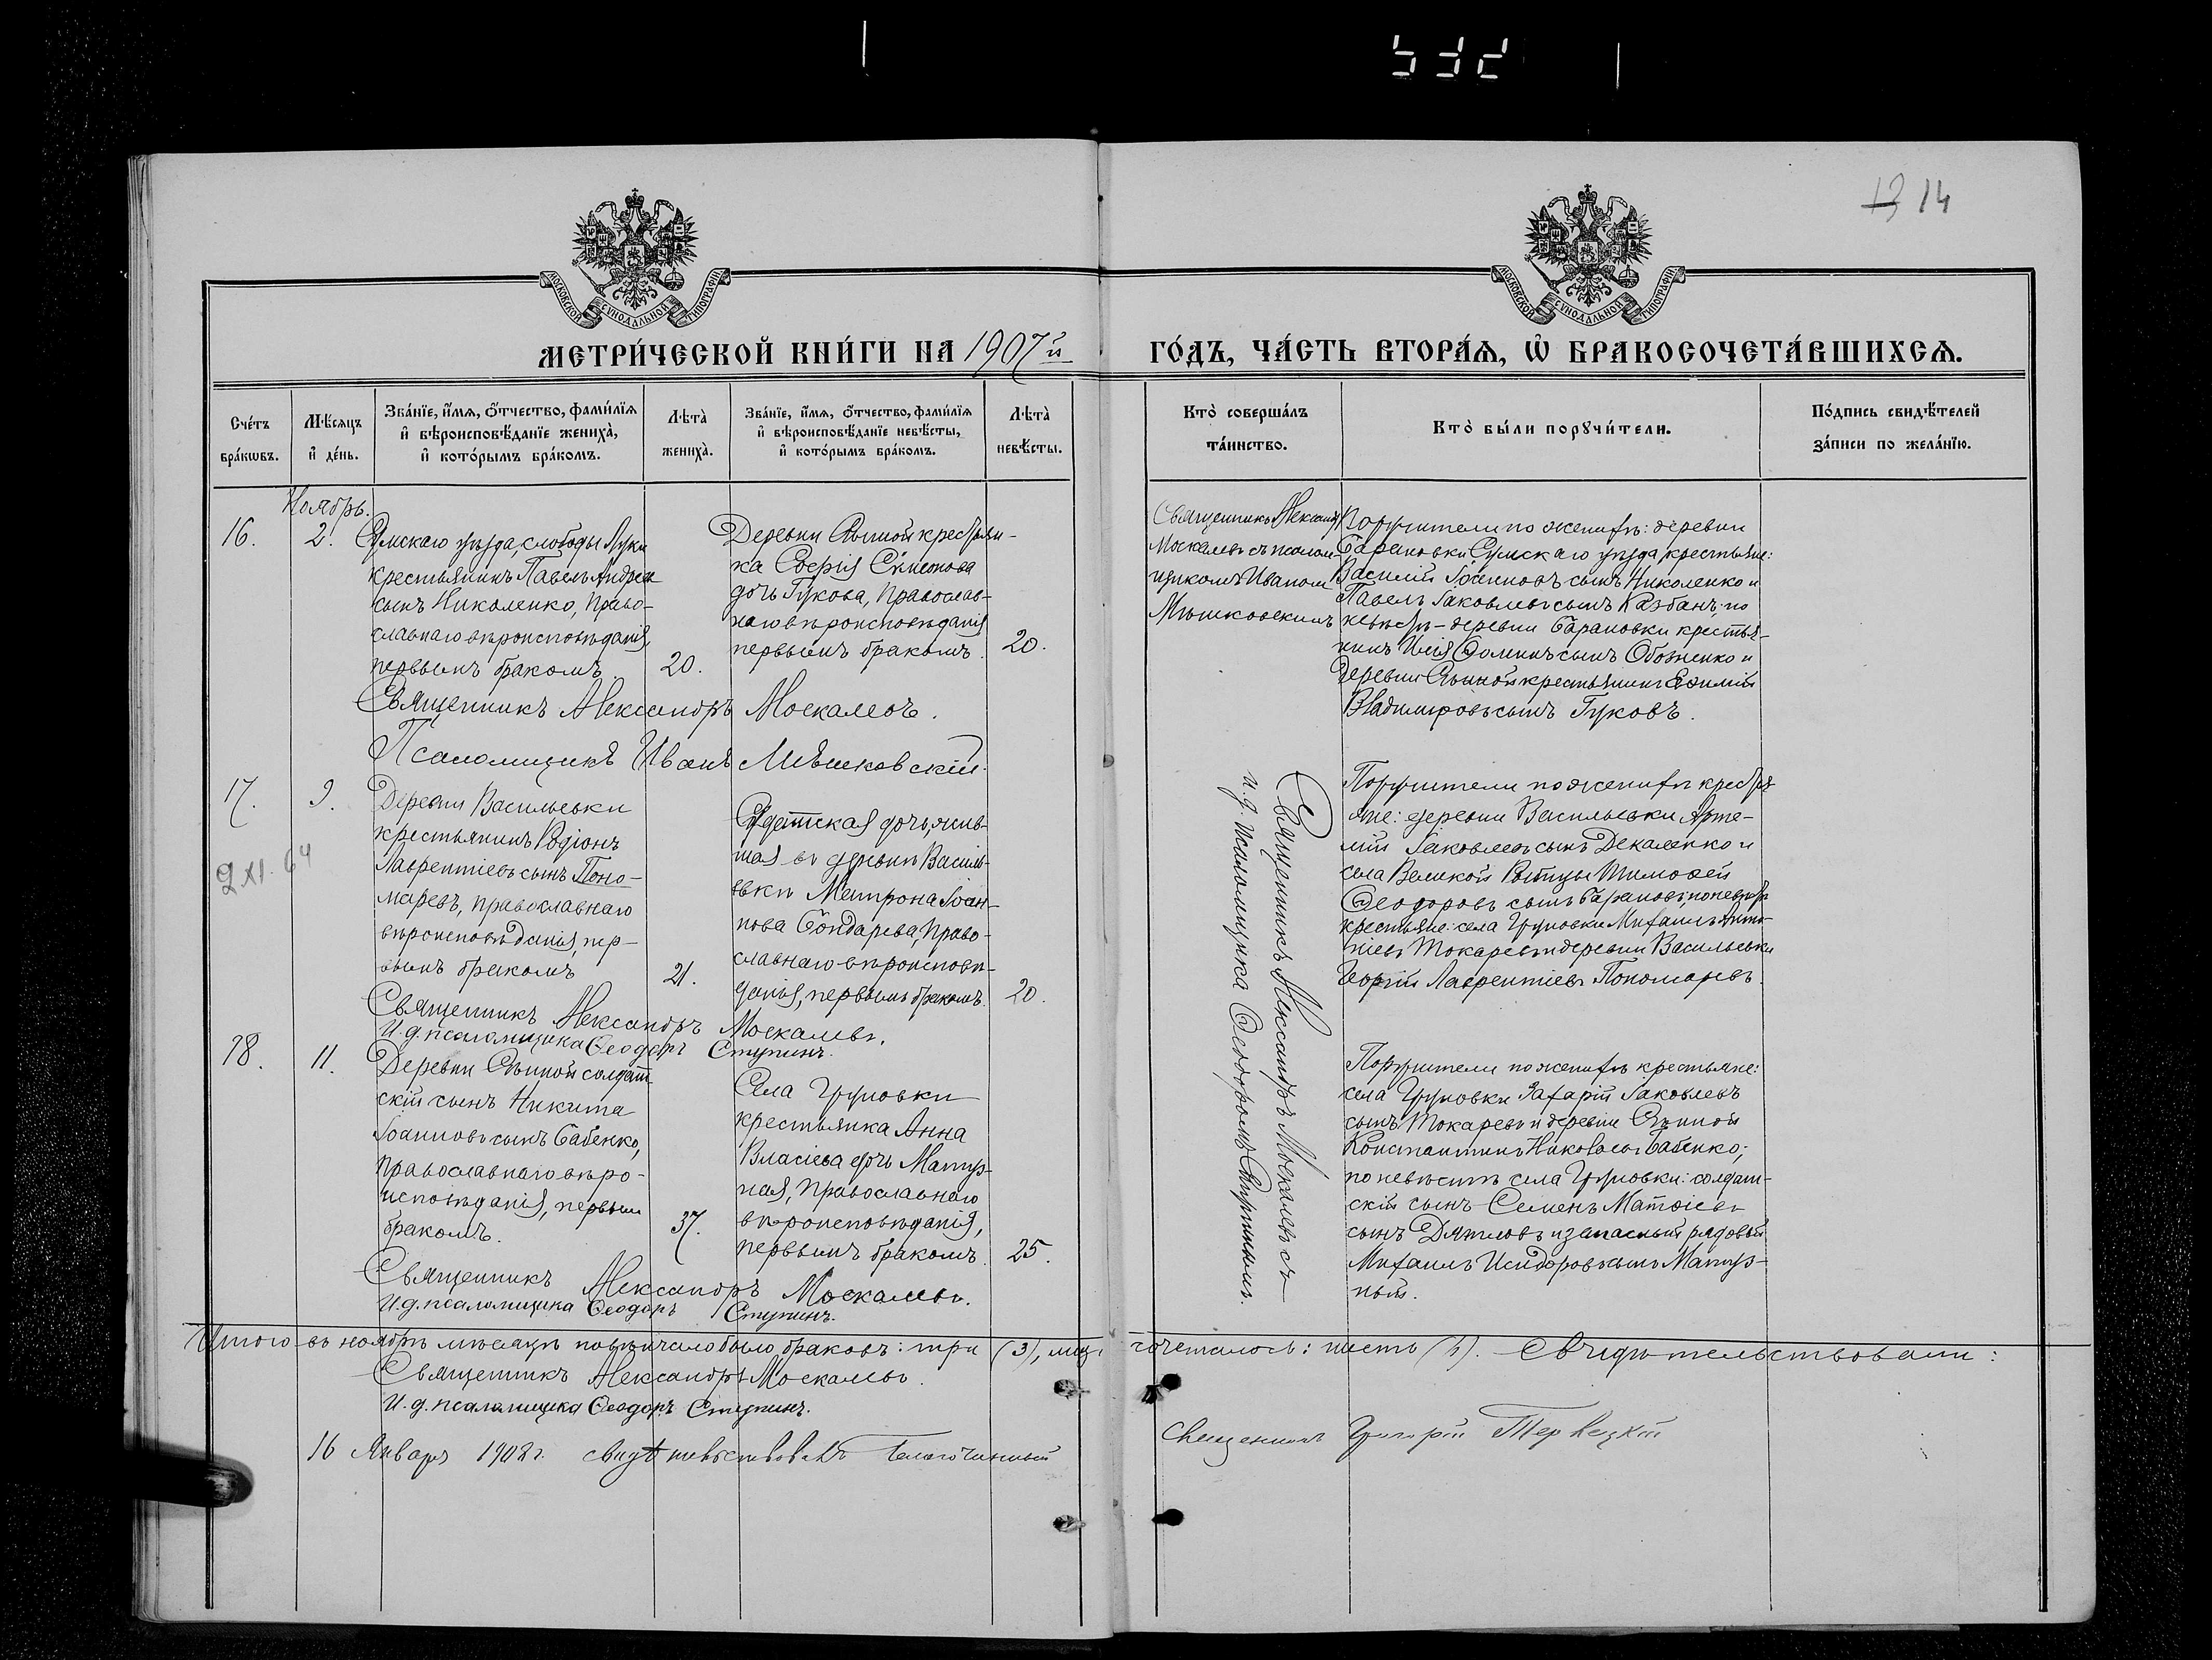 532
13 14
МОСКОВСКОЙ СУНОДАЛЬНОЙ ТИПОГРАФІИ
МОСКОВСКОЙ СУНОДАЛЬНОЙ ТИПОГРАФІИ
МЕТРИ́ЧЕСКОЙ КНИ́ГИ НА 1907й ГО́ДЪ, ЧА́СТЬ ВТОРА́Ѧ, Ѽ БРАКОСОЧЕТА́ВШИХСѦ.
Сче́тъ бра́кѡвъ.
Мѣ́сяцъ и҆ де́нь.
Зва́нїе, и҆́мѧ, ѻ҆́тчество, фами́лїѧ и҆ вѣроисповѣ́данїе жениха̀, и҆ кото́рымъ бра́комъ.
Лѣ́та̀ жениха̀.
Зва́нїе, и҆́мѧ, ѻ҆́тчество, фами́лїѧ и҆ вѣроисповѣ́данїе невѣ́сты, и҆ кото́рымъ бра́комъ.
Лѣ́та̀ невѣ́сты.
Кто̀ соверша́лъ та́инство.
Кто̀ бы́ли порꙋчи́тели.
По́дпись свидѣ́телей за́писи по жела́нїю.
Ноябрь.
16.
2.
Сумскаго уѣзда, слободы Луки
крестьянинъ Павелъ Андреевъ
сынъ Николенко, право-
славнаго вѣроисповѣданія,
первымъ бракомъ.
20.
Деревни Сѣнной крестьян-
ка Софія Симонова
дочь Гукова, православ-
наго вѣроисповѣданія
первымъ бракомъ.
20.
Священникъ Александръ
Москалевъ съ псалом-
щикомъ Иваномъ
Мѣшковскимъ
Поручители по женихѣ: деревни
Барановки Сумскаго уѣзда крестьяне:
Василій Іоанновъ сынъ Николенко и
Павелъ Іаковлевъ сынъ Казбанъ; по
невѣстѣ – деревни Барановки крестья-
нинъ Илія Ѳоминъ сынъ Обозненко и
деревни Сѣнной крестьянинъ Еѳимій
Владимировъ сынъ Гуковъ.
Священникъ Александръ Москалевъ.
Псаломщикъ Иванъ Мѣшковскій.
17.
9.
9 XI. 64
Деревни Васильевки
крестьянинъ Родіонъ
Лаврентіевъ сынъ Поно-
маревъ, православнаго
вѣроисповѣданія, пер-
вымъ бракомъ
21.
Солдатская дочь, жив-
шая въ деревнѣ Василь-
евкѣ Матрона Іоан-
нова Бондарева, право-
славнаго вѣроисповѣ-
данія, первымъ бракомъ.
20.
Священникъ Александръ Москалевъ съ
и.д. псаломщика Ѳеодоромъ Ступинымъ.
Поручители по женихѣ крестья-
яне: деревни Васильевки Арте-
мій Іаковлевъ сынъ Декаленко и
села Великой Рыбицы Тимоѳей
Ѳеодоровъ сынъ Барановъ; по невѣстѣ
крестьяне: села Груновки Михаилъ Анто-
ніевъ Токаревъ и деревни Васильевки
Георгій Лаврентіевъ Пономаревъ.
Священникъ Александръ Москалевъ.
И.д. псаломщика Ѳеодоръ Ступинъ.
18.
11.
Деревни Сѣнной солдат-
скій сынъ Никита
Іоанновъ сынъ Бабенко,
православнаго вѣро-
исповѣданія, первымъ
бракомъ.
37.
Села Груновки
крестьянка Анна
Власіева дочь Матуз-
ная, православнаго
вѣроисповѣданія,
первымъ бракомъ.
25.
Поручители по женихѣ крестьяне:
села Груновки Захарій Іаковлевъ
сынъ Токаревъ и деревни Сѣнной
Константинъ Николаевъ Бабенко;
по невѣстѣ села Груновки: солдат-
скій сынъ Семенъ Матѳіевъ
сынъ Дятловъ и запасный рядовый
Михаилъ Исидоровъ сынъ Матуз-
ный.
Священникъ Александръ Москалевъ.
И.д. псаломщика Ѳеодоръ Ступинъ.
Итого въ ноябрѣ мѣсяцѣ повѣнчано было браковъ: три (3), лицъ сочеталось: шесть (6). Свидѣтельствовали:
Священникъ Александръ Москалевъ.
И.д. псаломщика Ѳеодоръ Ступинъ.
16 Января 1908 г. свидѣтельствовалъ Благочинный священникъ Григорій